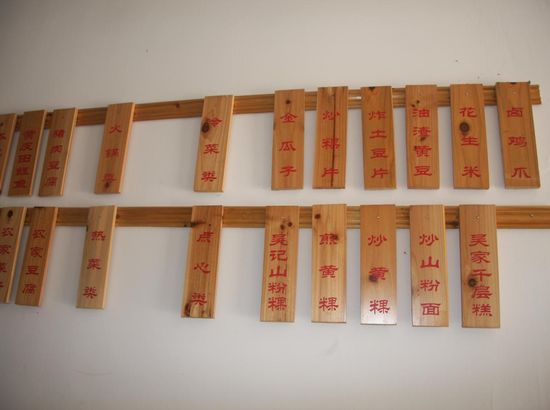 火锅类
冷菜类
金瓜子
炸土豆片
油渣黄豆
花生米
卤鸡爪
农家豆腐
热菜类
点心类
吴记山粉粿
煎黄粿
炒黄粿
炒山粉面
吴家千层糕